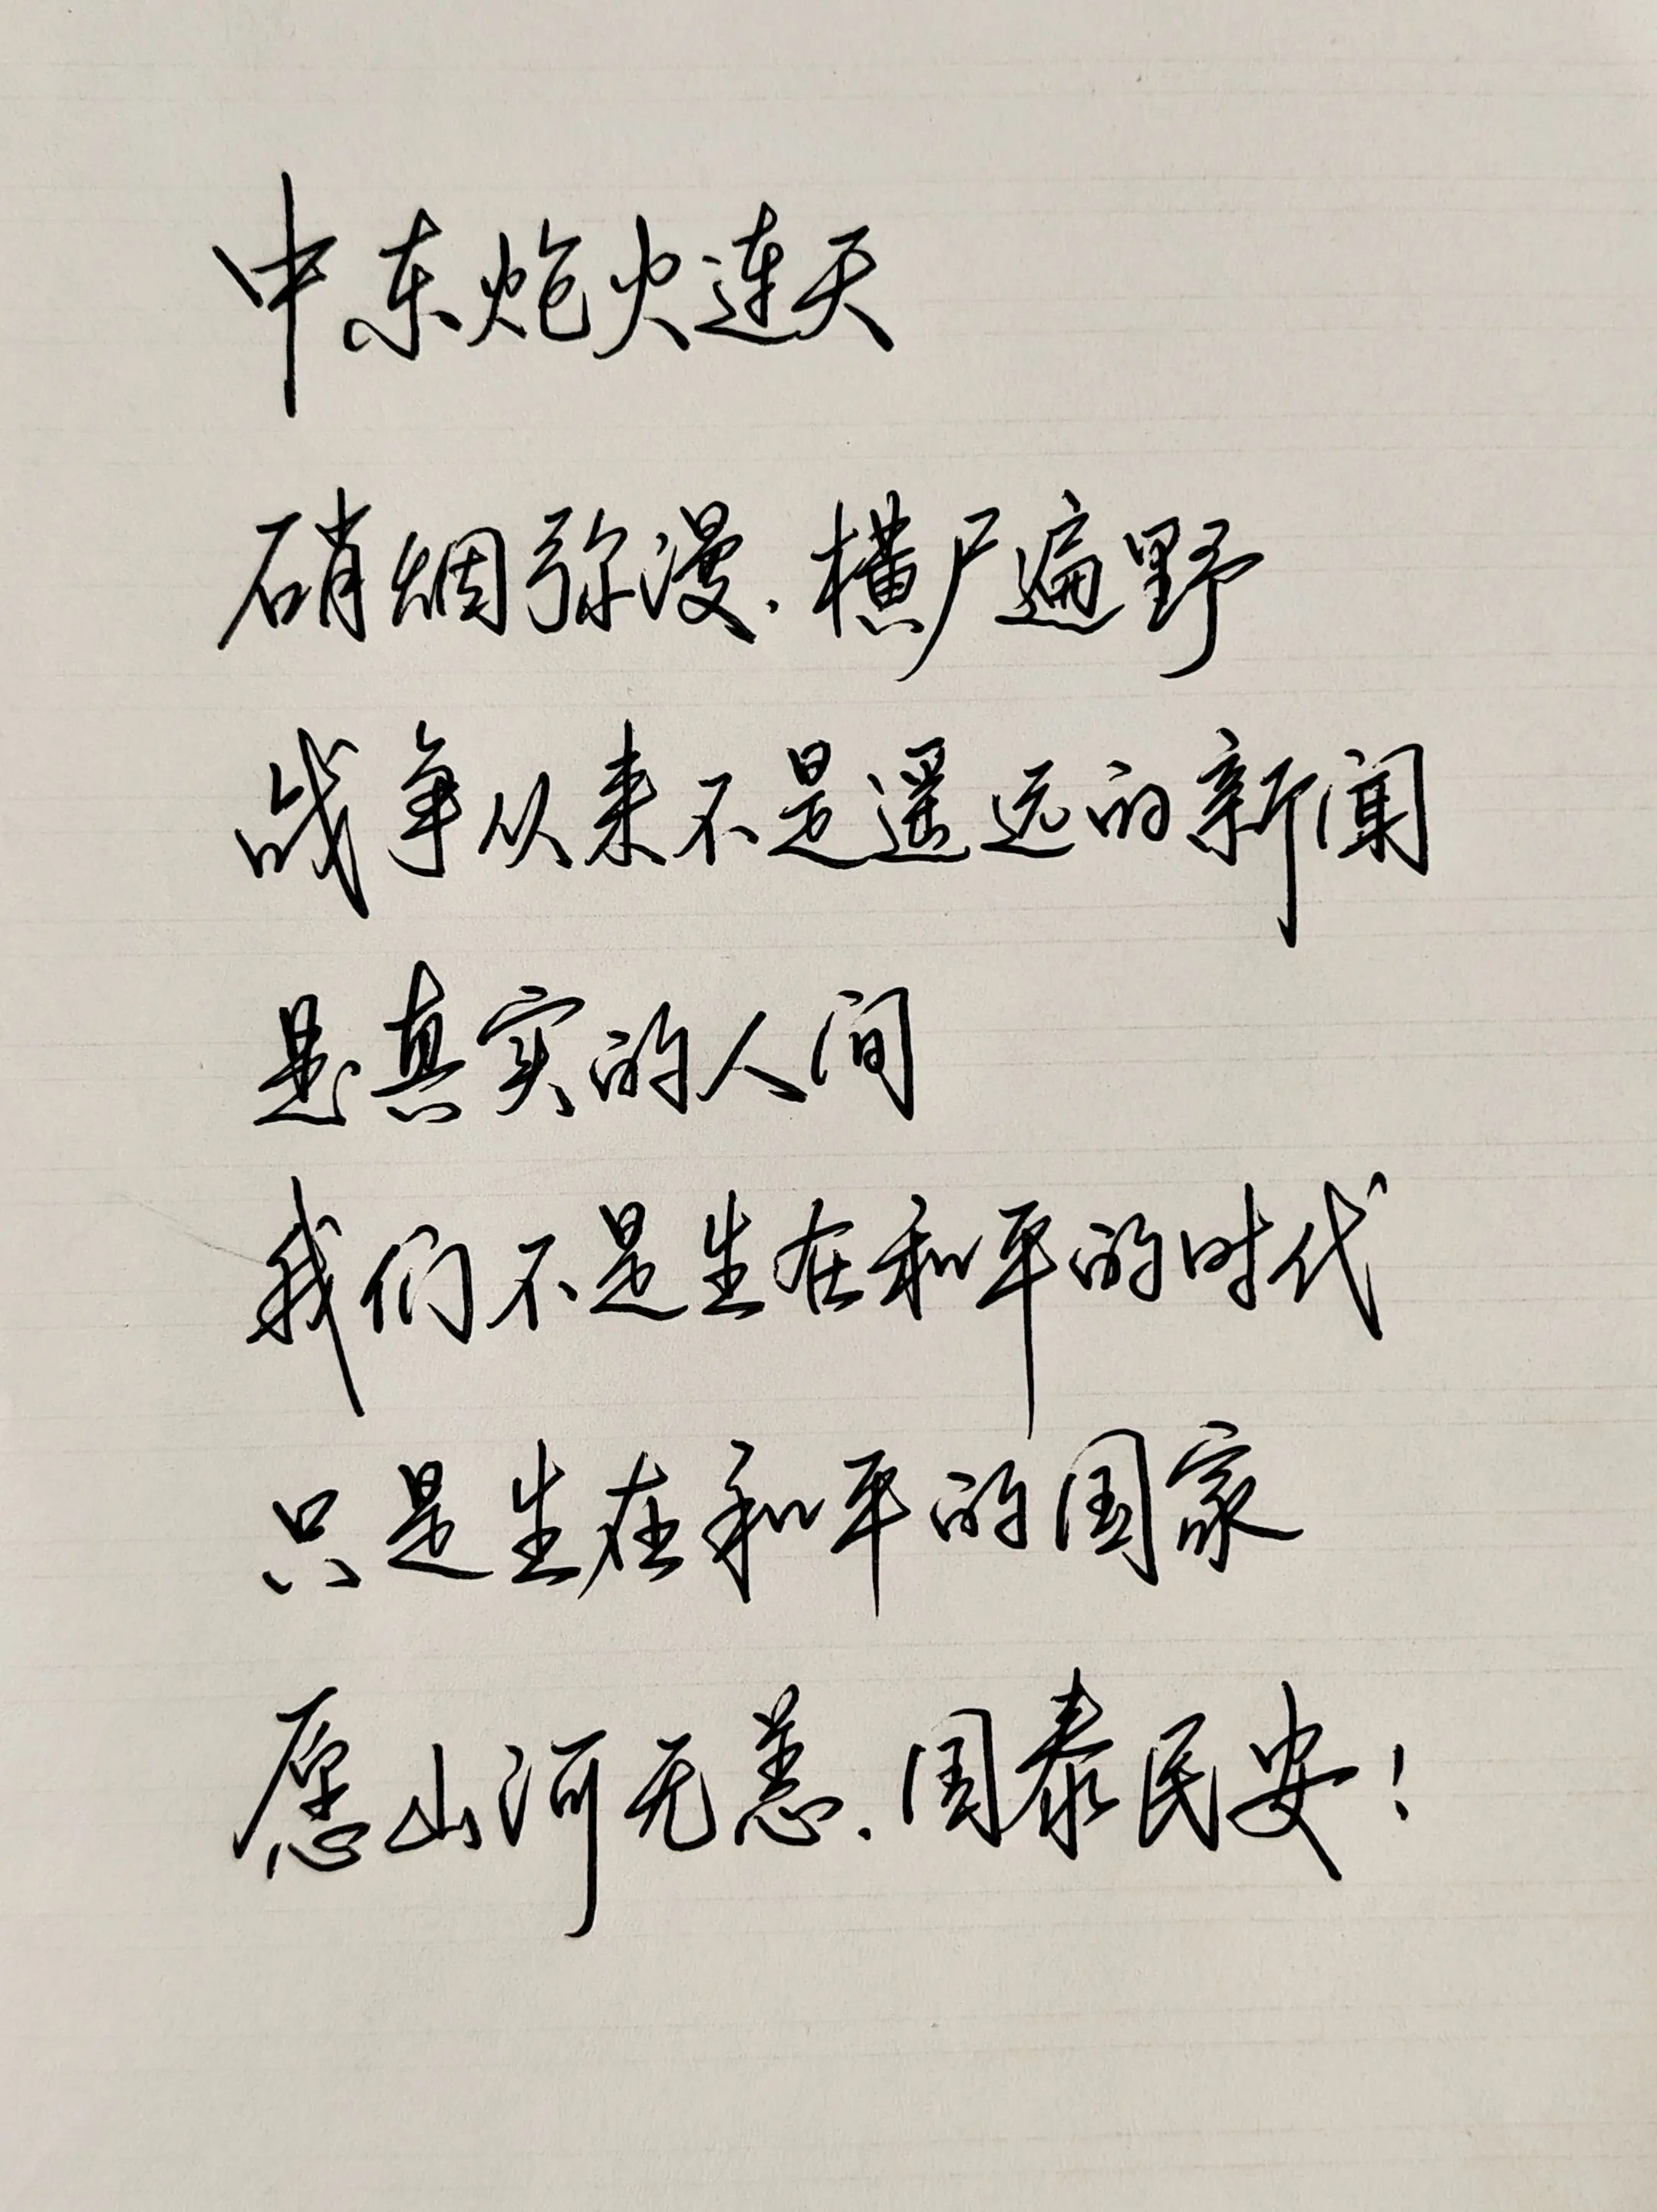 中东炮火连天
硝烟弥漫.横尸遍野
战争从来不是遥远的新闻
是真实的人间
我们不是生在和平的时代
只是生在和平的国家
愿山河无恙.国泰民安!